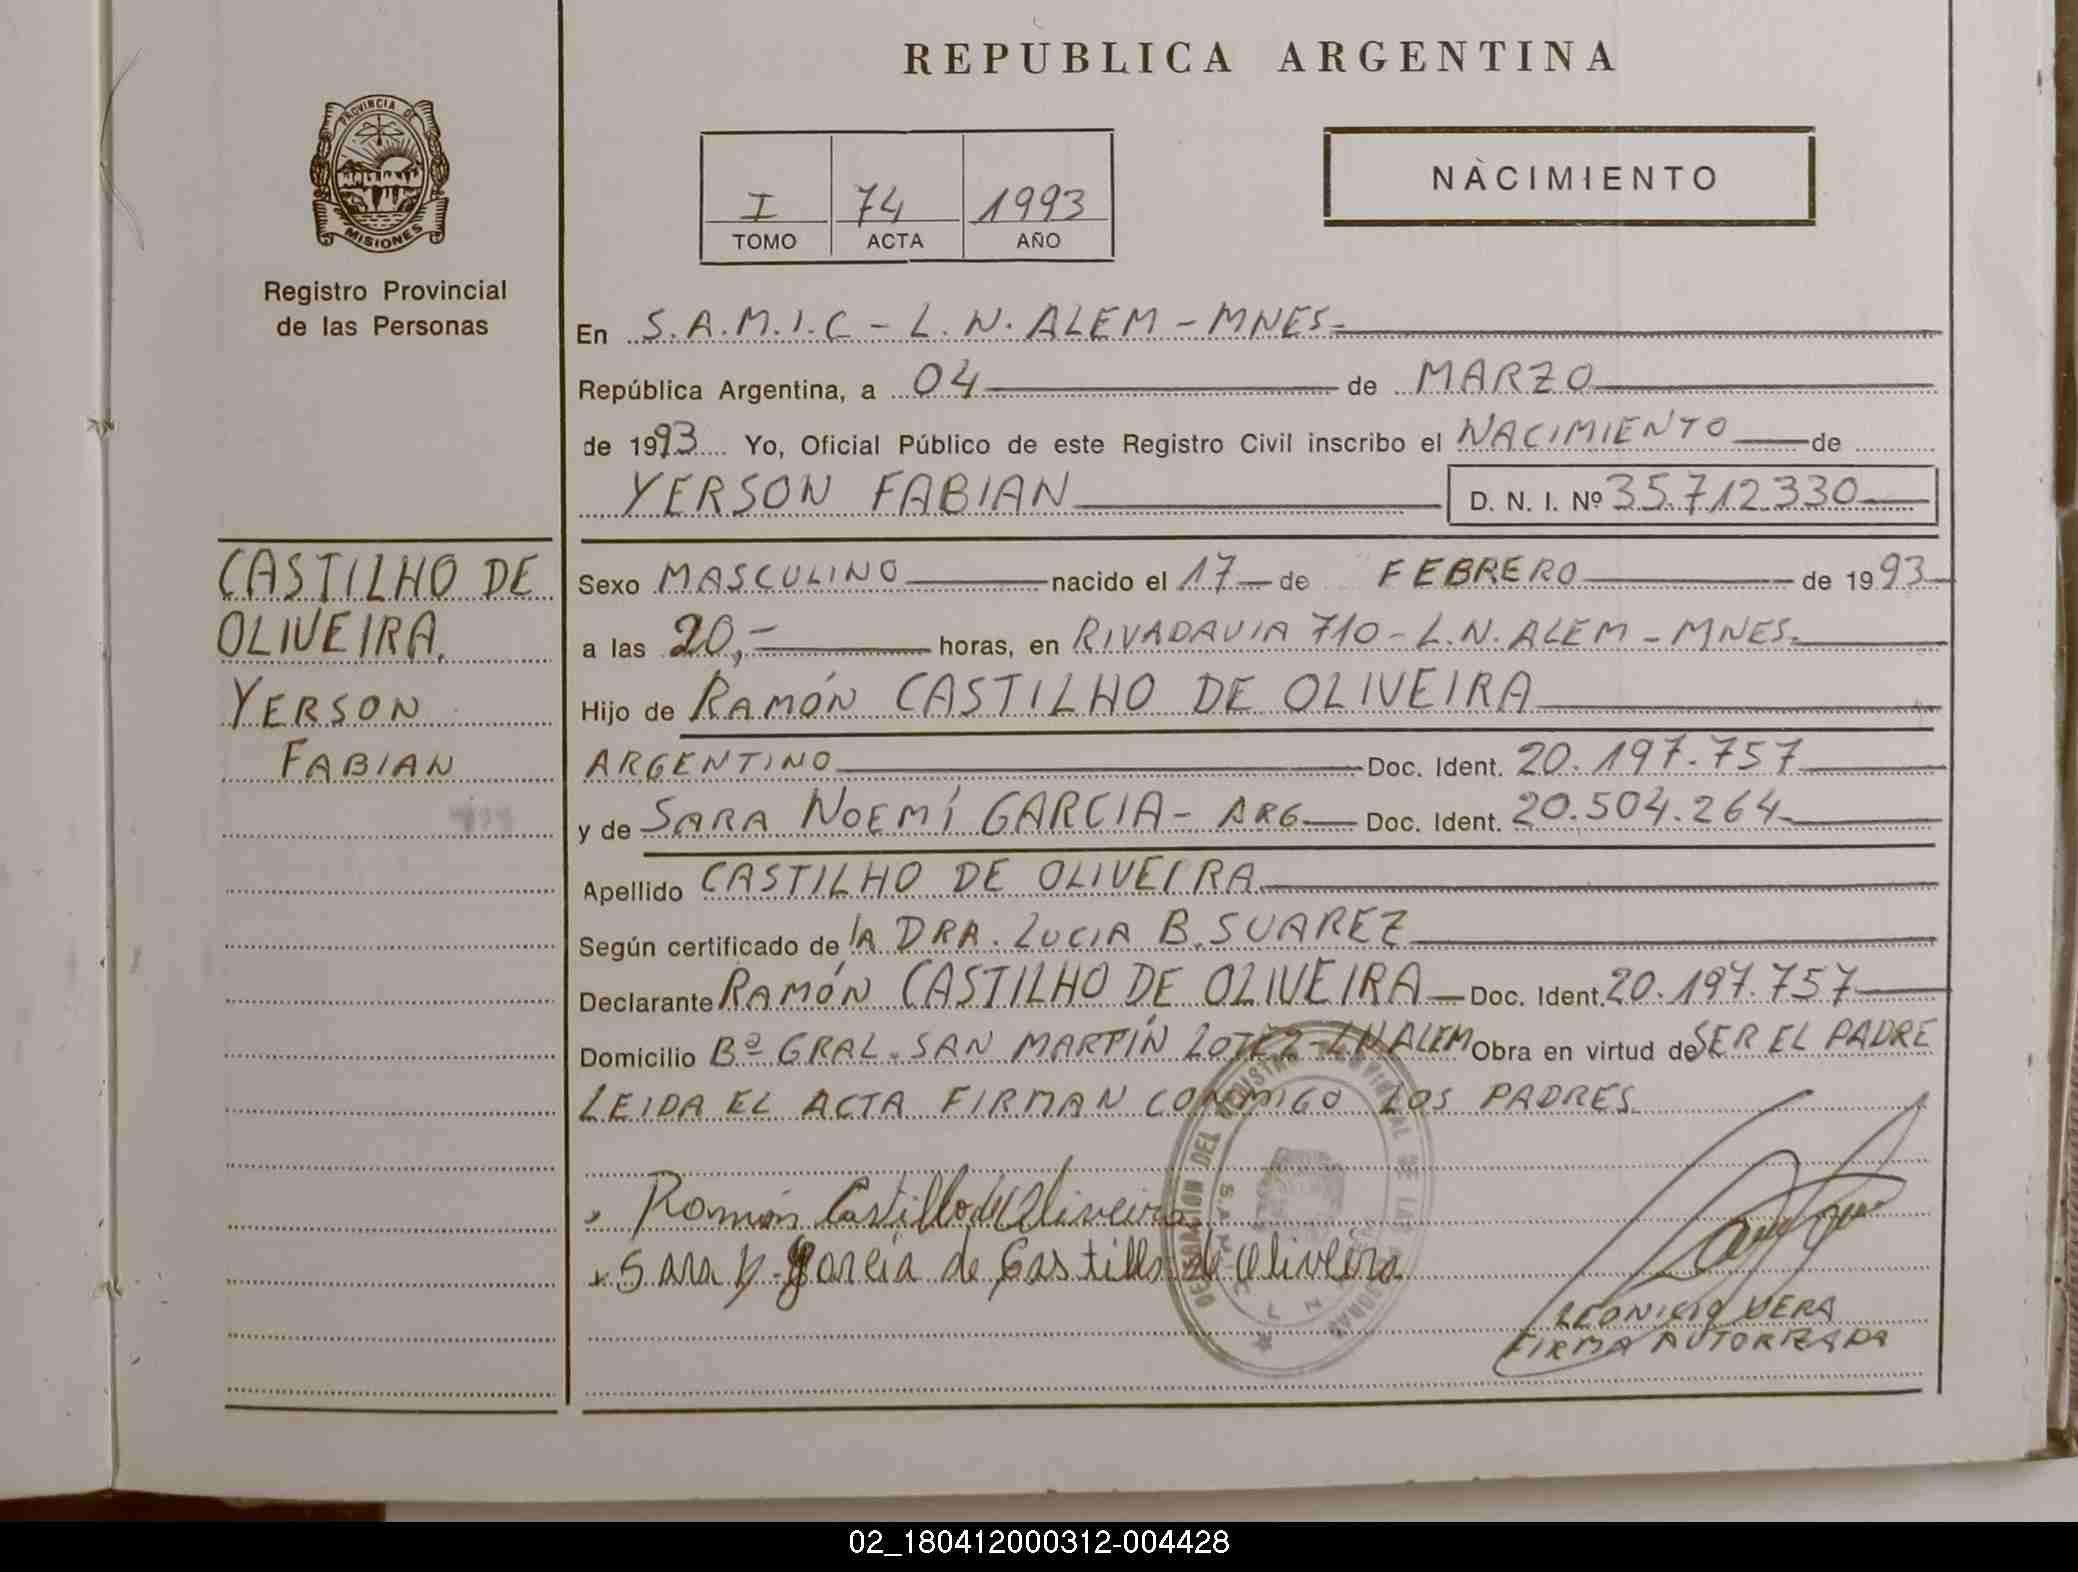 REPUBLICA ARGENTINA
PROVINCIA DE
MISIONES
Registro Provincial
de las Personas
I 74 1993
TOMO ACTA AÑO
NACIMIENTO
En S.A.M.I.C - L.N. ALEM - MNES-
República Argentina, a 04 de MARZO
de 1993 Yo, Oficial Público de este Registro Civil inscribo el NACIMIENTO de
YERSON FABIAN D. N. I. Nº 35.712.330
CASTILHO DE
OLIVEIRA.
YERSON
FABIAN
Sexo MASCULINO nacido el 17 de FEBRERO de 1993
a las 20,- horas, en RIVADAVIA 710 - L.N. ALEM - MNES.
Hijo de RAMÓN CASTILHO DE OLIVEIRA
ARGENTINO Doc. Ident. 20.197.757
y de SARA NOEMÍ GARCIA - ARG Doc. Ident. 20.504.264
Apellido CASTILHO DE OLIVEIRA
Según certificado de lA DRA. LUCIA B. SUAREZ
Declarante RAMÓN CASTILHO DE OLIVEIRA Doc. Ident. 20.197.757
Domicilio Bº GRAL. SAN MARTÍN - LN ALEM Obra en virtud de SER EL PADRE
LEIDA EL ACTA FIRMAN CONMIGO LOS PADRES
Ramón Castillo de Oliveira
Sara N. García de Castillo de Oliveira
DEL
S.A.M.I.C
LEONICIO VERA
FIRMA AUTORIZADA
02_180412000312-004428